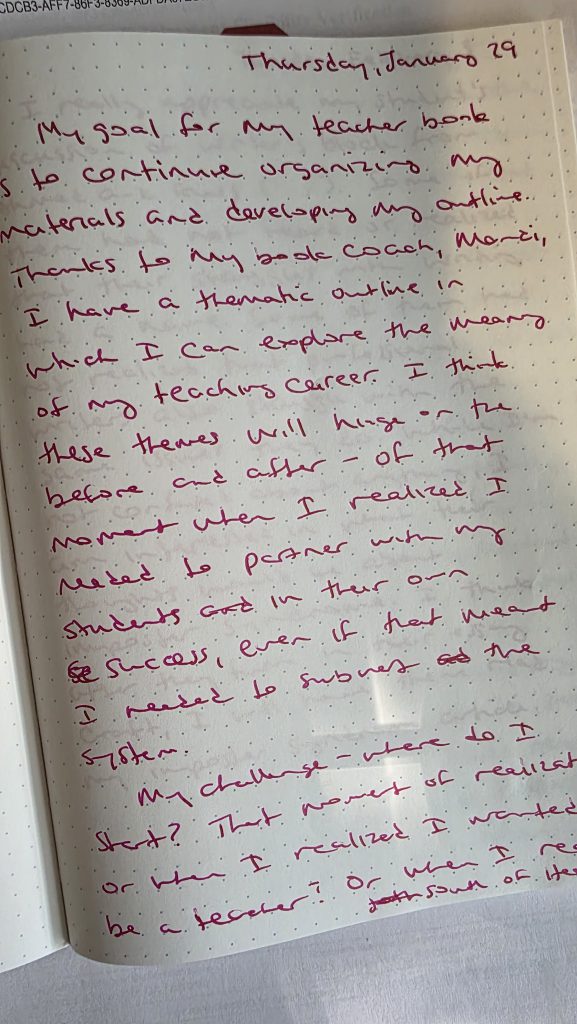 CDCB3-AFF7-86F3-8369-
Thursday, January 29
My goal for my teacher book
s to continue organizing my
materials and developing my outline.
Thanks to my book coach, Marci,
I have a thematic outline in
which I can explore the meaning
of my teaching career. I think
these themes will hinge on the
before and after - of that
moment when I realized I
needed to partner with my
students and in their own
success, even if that meant
I needed to subvert the
system.
My challenge - where do I
start? That moment of realizat
or when I realized I wanted
be a teacher? Or when I rea
South of